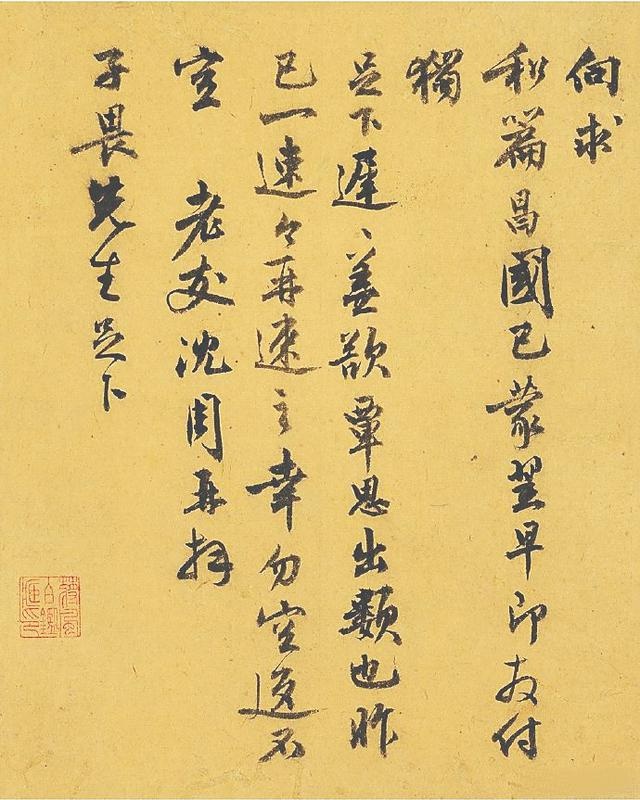 向求
和篇昌國已蒙翌早即付
獨
足下遲〻蓋欲覃思出類也昨
已一速今再速之幸勿空返不
宣 老友沈周再拜
子畏先生足下